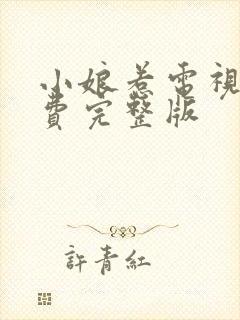 小娘惹電視
費完整版
許青紅